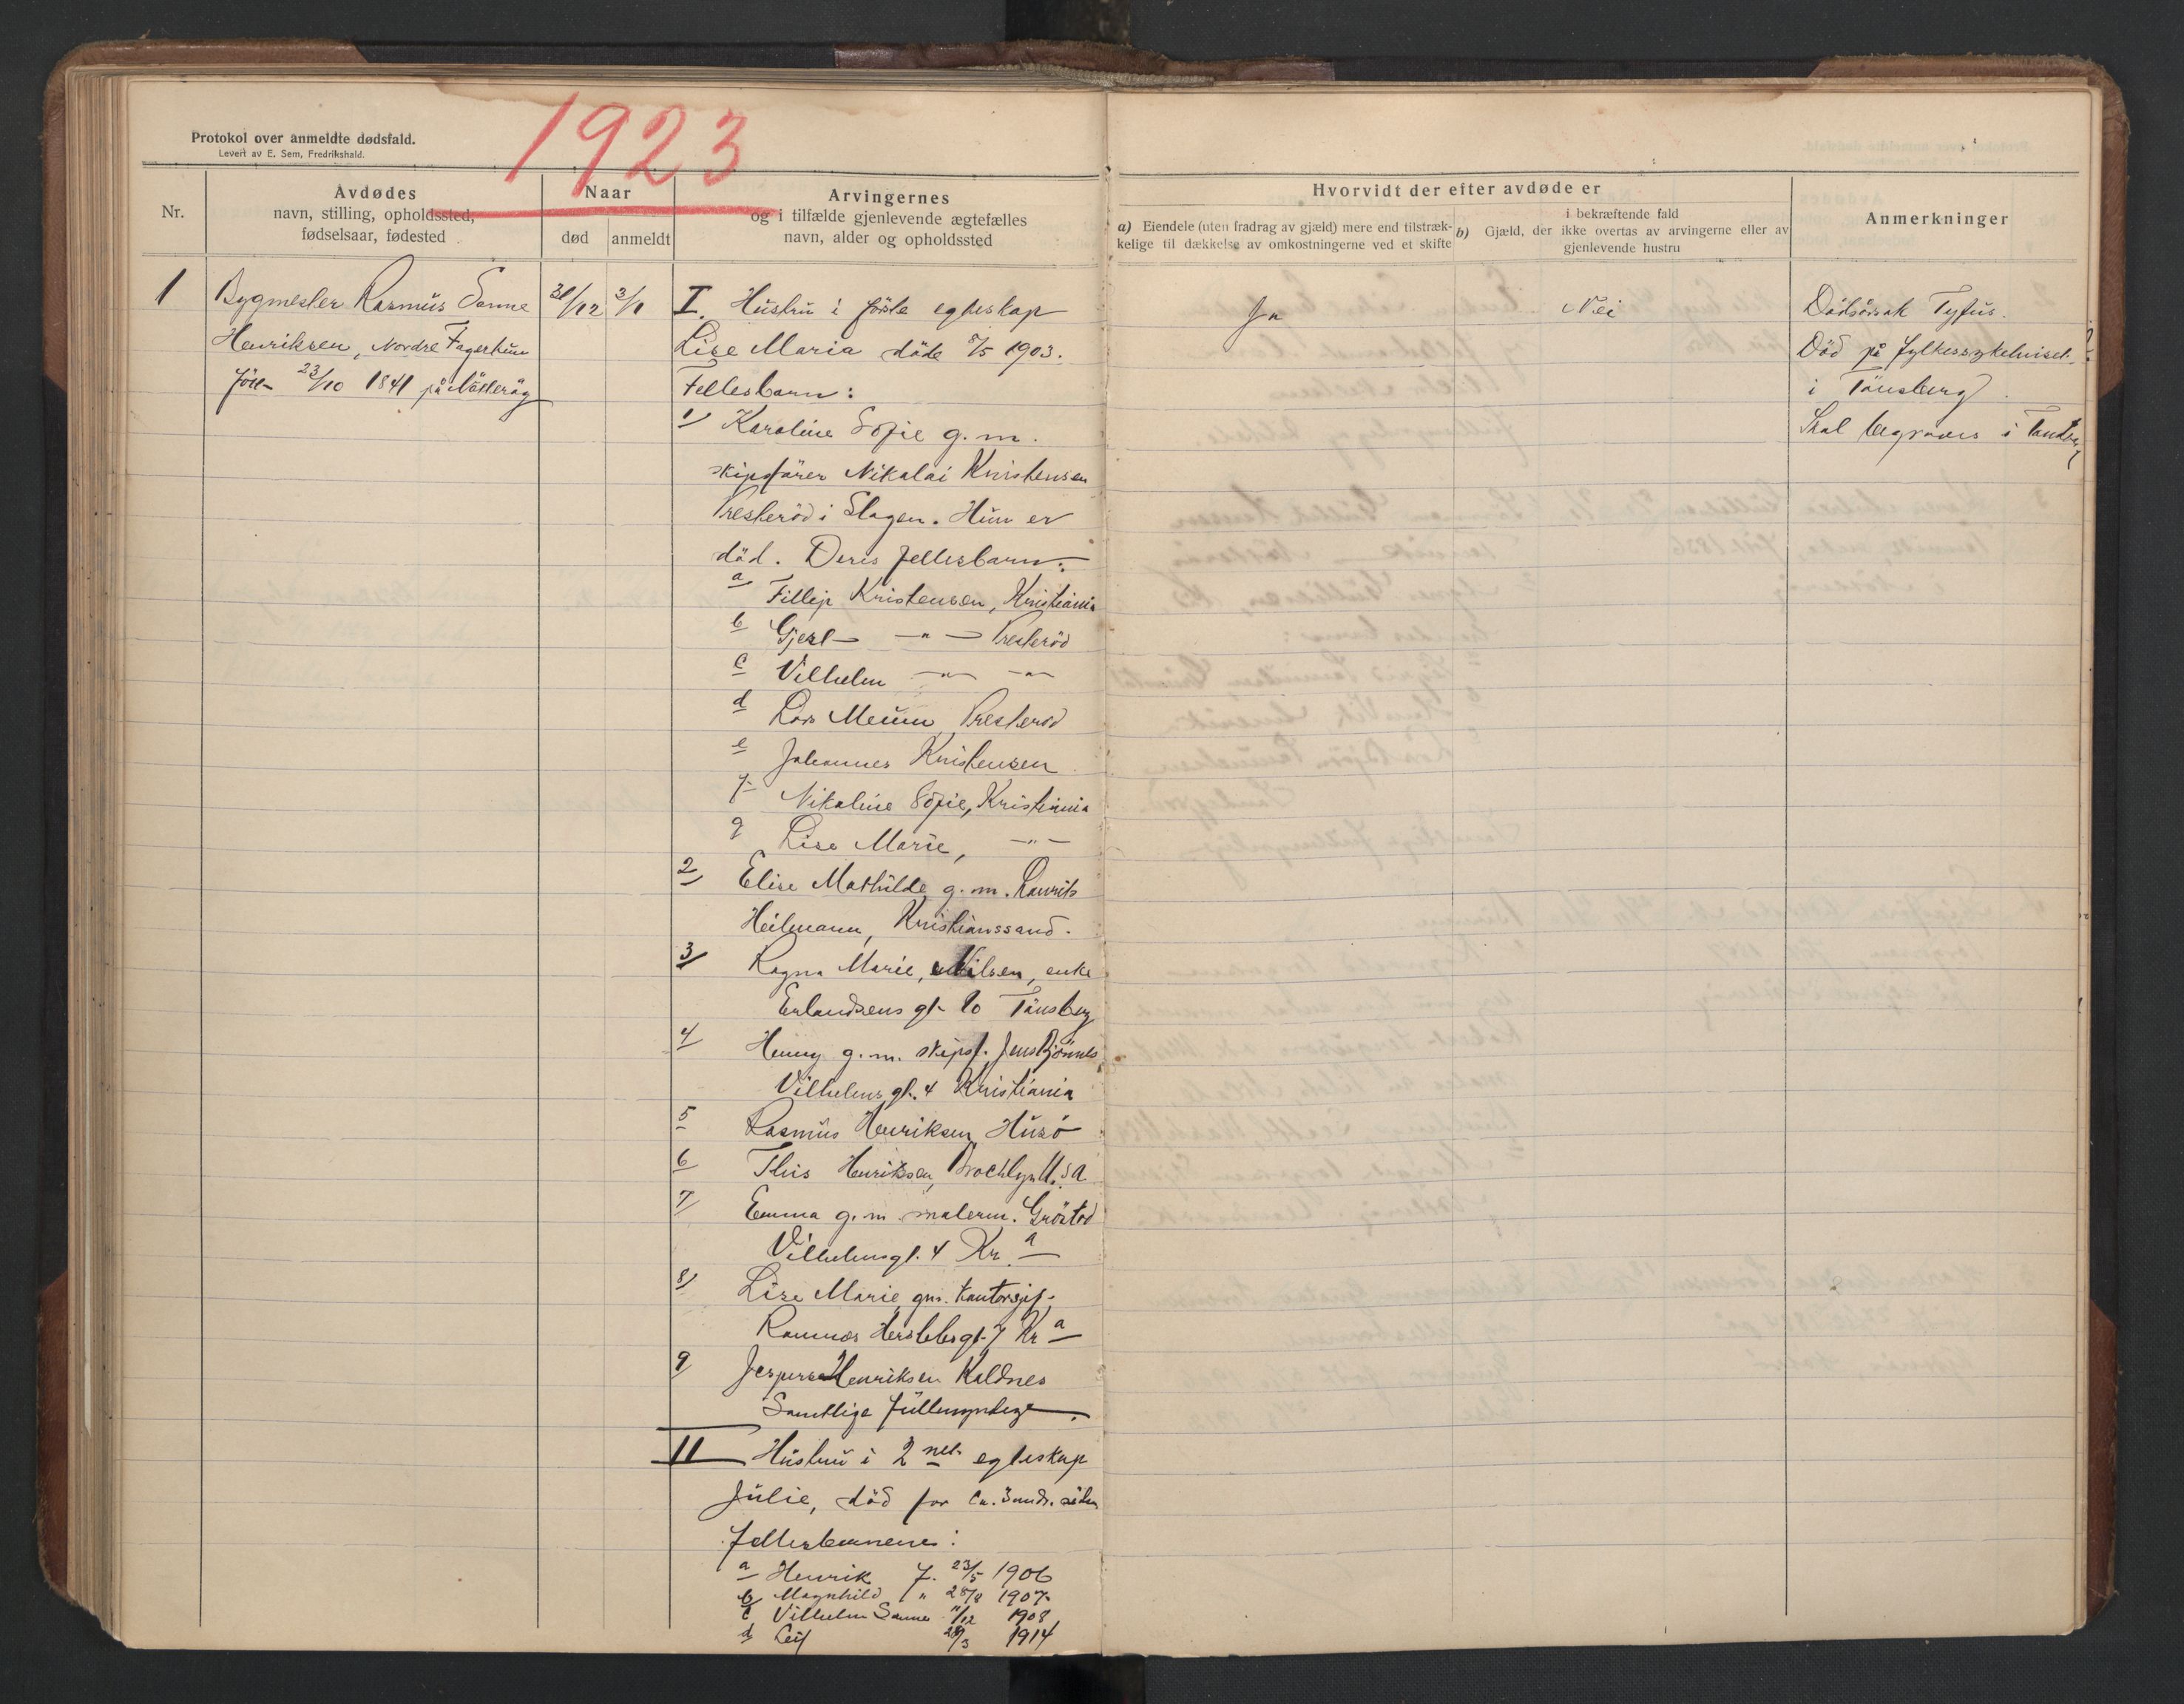 1923
Protokol over anmeldte dødsfald.
Levert av E. Sem, Fredrikshald.
Nr.
Avdødes
navn, stilling, opholdssted,
fødselsaar, fødested
Naar
død
anmeldt
Arvingernes
og i tilfælde gjenlevende ægtefælles
navn, alder og opholdssted
Hvorvidt der efter avdøde er
a) Eiendele (uten fradrag av gjæld) mere end tilstræk-
kelige til dækkelse av omkostningerne ved et skifte
b) Gjæld, der
i bekræftende fald
ikke overtas av arvingerne eller av
gjenlevende hustru
Anmerkninger
1
Bygmester Rasmus Sanne
Henriksen, Nordre Fagerheim
født 23/10 1841 på Nötteröy
31/12
3/1
I. Hustru i förste egteskap
Lise Maria döde 8/5 1903.
Fellesbarn:
1/ Karoline Sofie g. m.
skipsförer Nikolai Kristensen
Presteröd i Slagen. Hun er
död. Deres fellesbarn:
a Fillip Kristensen, Kristiania
b Gjert —"— Presteröd
c Vilhelm —"— —"—
d Lars Meum, Presteröd
e Johannes Kristensen
f Nikoline Sofie, Kristiania
g Lise Marie, —"—
2/ Elise Mathilde g. m. Laurits
Heilmann, Kristianssand.
3/ Ragna Marie, Nilsen, enke
Erlandsens gt. 20 Tönsberg
4/ Henny g. m. skipsf. Jens Bjönnes
Vilhelms gt. 4 Kristiania
5 Rasmus Henriksen Husö
6 This Henriksen, Brooklyn U.S.A
7/ Emma g. m. malerm. Gröstad
Vilhelmsgt. 4 Kr.a
8/ Lise Marie gm. kontorsjef.
Ramnes Herslebsgt. 7 Kr a
9/ Jespersen Henriksen Kaldnes
Samtlige fullmyndige.
II Hustru i 2net egteskap
Julie, död for ca. 3 mdr. siden
Fellesbarnene:
a Henrik f. 23/5 1906
b Magnhild " 28/8 1907
c Vilhelm Sanne 11/12 1908
d Leif 28/3 1914
Ja
Nei
Dödsårsak Tyfus.
Död på fylkessykehuset
i Tönsberg.
Skal begraves i Tönsberg